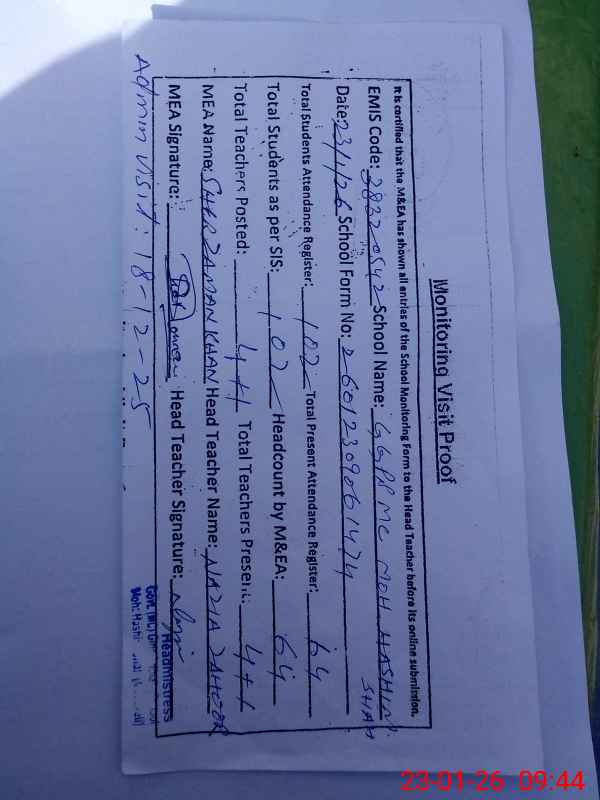 Monitoring Visit Proof
It is certified that the M&EA has shown all entries of the School Monitoring Form to the Head Teacher before its online submission.
EMIS Code: 38320542 School Name: GGPS MC MOH HASHIM SHAH
Date: 23/1/26 School Form No: 26012309061474
Total Students Attendance Register: 102 Total Present Attendance Register: 64
Total Students as per SIS: 102 Headcount by M&EA: 64
Total Teachers Posted: 4+1 Total Teachers Present: 4+1
MEA Name: SHER ZAMAN KHAN Head Teacher Name: NAZIA ZAHOOR
MEA Signature: Head Teacher Signature:
Admin visit: 18-12-25
Headmistress
23-01-26 09:44